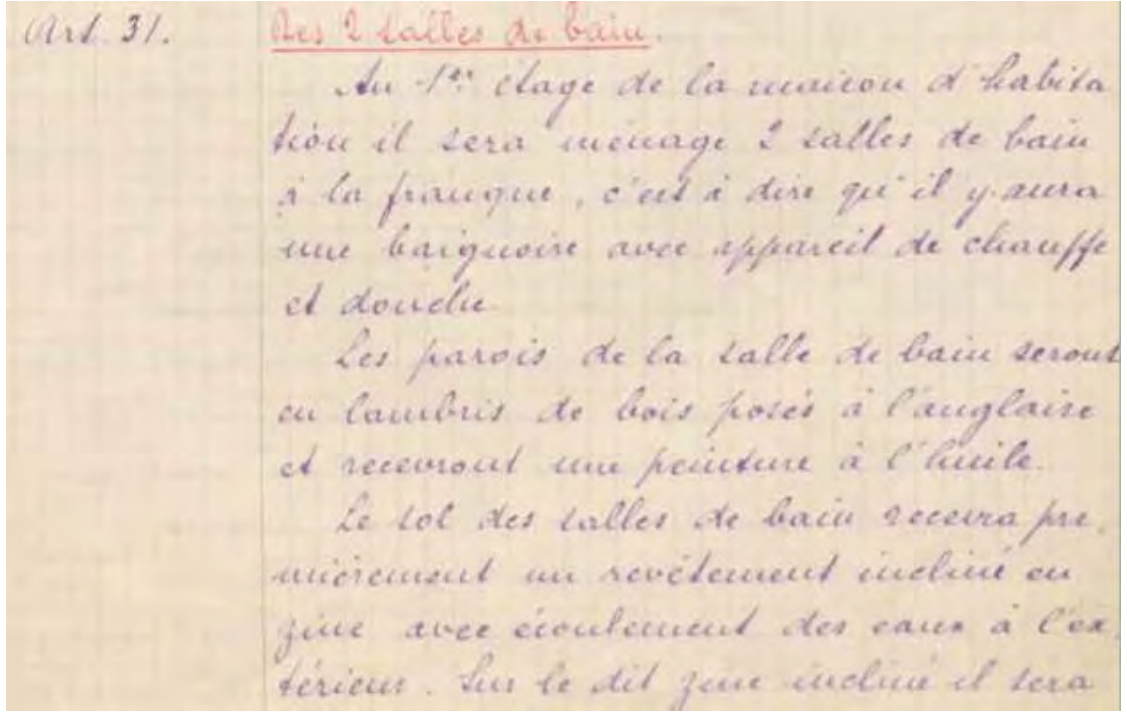 Art. 31. Des 2 salles de bain.
Au 1er étage de la maison d'habita
tion il sera ménagé 2 salles de bain
à la franque, c'est à dire qu'il y aura
une baignoire avec appareil de chauffe
et douche.
Les parois de la salle de bain seront
en lambris de bois posés à l'anglaise
et recevront une peinture à l'huile.
Le sol des salles de bain recevra pre.
mièrement un revêtement incliné en
zinc avec écoulement des eaux à l'ex.
térieur. Sur le dit zinc incliné il sera